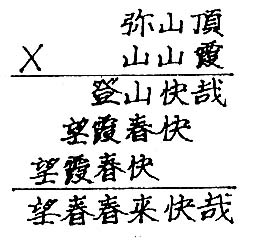 弥山頂
X 山山霞
登山快哉
望霞春快
望霞春快
望春春来快哉